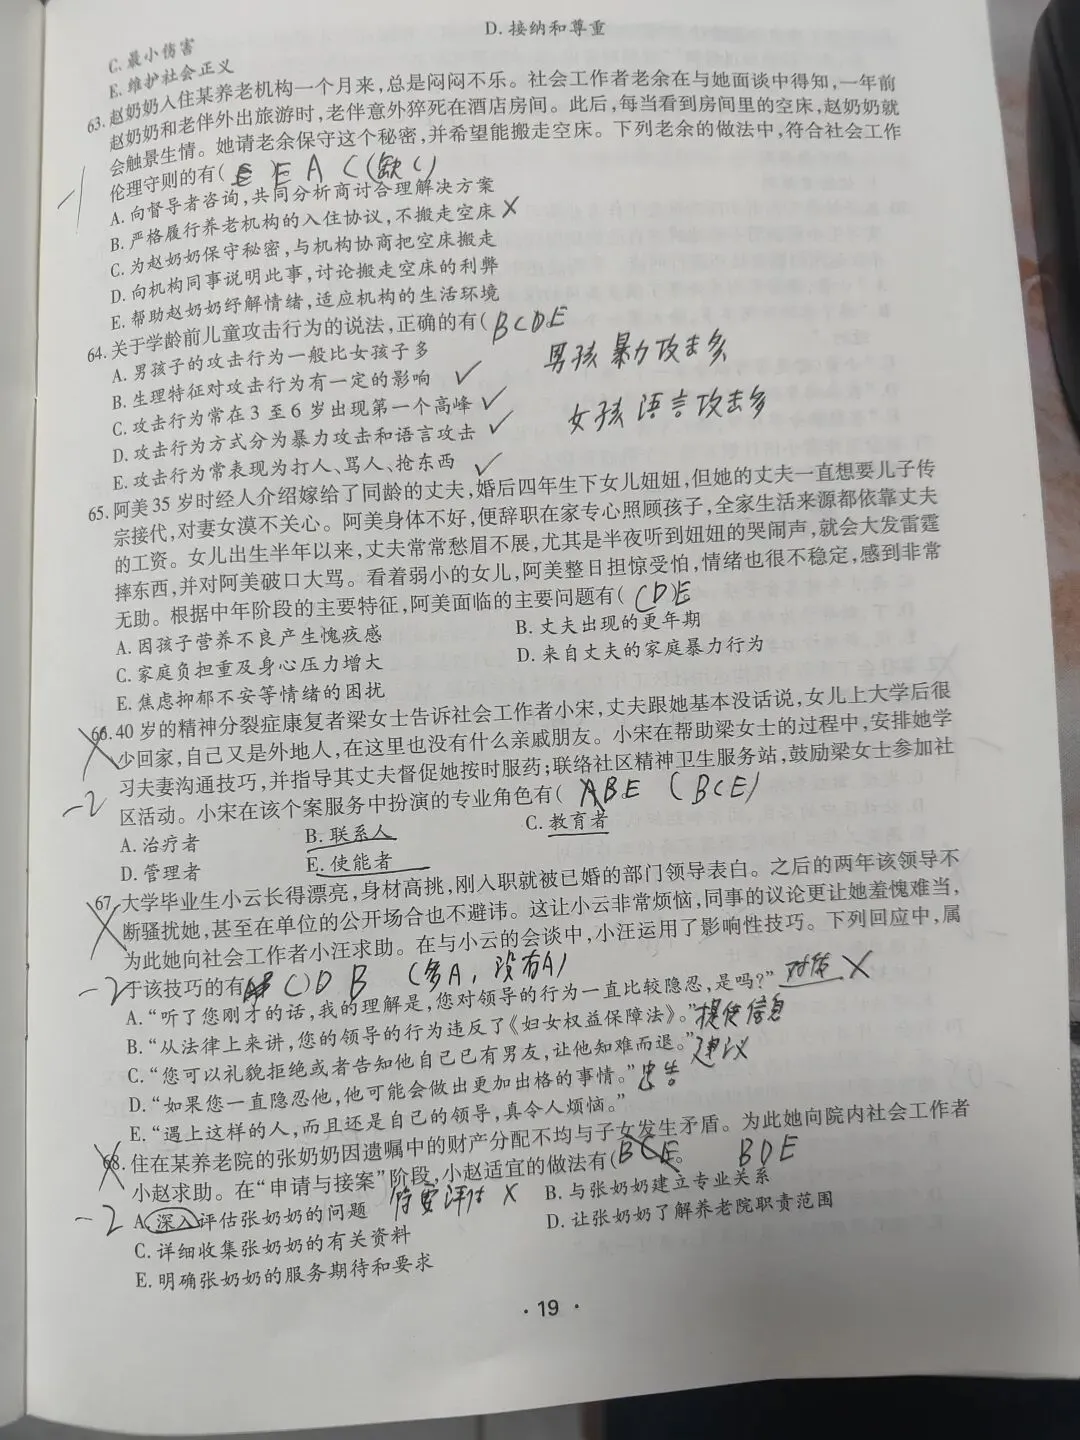 C. 最小伤害
D. 接纳和尊重
E. 维护社会正义
63. 赵奶奶入住某养老机构一个月来,总是闷闷不乐。社会工作者老余在与她面谈中得知,一年前
赵奶奶和老伴外出旅游时,老伴意外猝死在酒店房间。此后,每当看到房间里的空床,赵奶奶就
会触景生情。她请老余保守这个秘密,并希望能搬走空床。下列老余的做法中,符合社会工作
伦理守则的有( ) E A C (缺C)
-1
A. 向督导者咨询,共同分析商讨合理解决方案
B. 严格履行养老机构的入住协议,不搬走空床 X
C. 为赵奶奶保守秘密,与机构协商把空床搬走
D. 向机构同事说明此事,讨论搬走空床的利弊
E. 帮助赵奶奶纾解情绪,适应机构的生活环境
64. 关于学龄前儿童攻击行为的说法,正确的有( BCDE
A. 男孩子的攻击行为一般比女孩子多
男孩暴力攻击多
B. 生理特征对攻击行为有一定的影响 ✓
C. 攻击行为常在 3 至 6 岁出现第一个高峰 ✓
女孩语言攻击多
D. 攻击行为方式分为暴力攻击和语言攻击 ✓
E. 攻击行为常表现为打人、骂人、抢东西 ✓
65. 阿美 35 岁时经人介绍嫁给了同龄的丈夫,婚后四年生下女儿妞妞,但她的丈夫一直想要儿子传
宗接代,对妻女漠不关心。阿美身体不好,便辞职在家专心照顾孩子,全家生活来源都依靠丈夫
的工资。女儿出生半年以来,丈夫常常愁眉不展,尤其是半夜听到妞妞的哭闹声,就会大发雷霆
摔东西,并对阿美破口大骂。看着弱小的女儿,阿美整日担惊受怕,情绪也很不稳定,感到非常
无助。根据中年阶段的主要特征,阿美面临的主要问题有( CDE
A. 因孩子营养不良产生愧疚感 B. 丈夫出现的更年期
C. 家庭负担重及身心压力增大 D. 来自丈夫的家庭暴力行为
E. 焦虑抑郁不安等情绪的困扰
66. 40 岁的精神分裂症康复者梁女士告诉社会工作者小宋,丈夫跟她基本没话说,女儿上大学后很
少回家,自己又是外地人,在这里也没有什么亲戚朋友。小宋在帮助梁女士的过程中,安排她学
习夫妻沟通技巧,并指导其丈夫督促她按时服药;联络社区精神卫生服务站,鼓励梁女士参加社
-2
区活动。小宋在该个案服务中扮演的专业角色有( ABE (BCE)
A. 治疗者 B. 联系人 C. 教育者
D. 管理者 E. 使能者
67. 大学毕业生小云长得漂亮,身材高挑,刚入职就被已婚的部门领导表白。之后的两年该领导不
断骚扰她,甚至在单位的公开场合也不避讳。这让小云非常烦恼,同事的议论更让她羞愧难当,
为此她向社会工作者小汪求助。在与小云的会谈中,小汪运用了影响性技巧。下列回应中,属
-2 于该技巧的有( C)D B (多A,没有A)
A. “听了您刚才的话,我的理解是,您对领导的行为一直比较隐忍,是吗?” 对质 X
B. “从法律上来讲,您的领导的行为违反了《妇女权益保障法》。” 提供信息
C. “您可以礼貌拒绝或者告知他自己已有男友,让他知难而退。” 建议
D. “如果您一直隐忍他,他可能会做出更加出格的事情。” 忠告
E. “遇上这样的人,而且还是自己的领导,真令人烦恼。”
68. 住在某养老院的张奶奶因遗嘱中的财产分配不均与子女发生矛盾。为此她向院内社会工作者
小赵求助。在“申请与接案”阶段,小赵适宜的做法有( BCE。 BDE
-2 A. 深入评估张奶奶的问题 X B. 与张奶奶建立专业关系
C. 详细收集张奶奶的有关资料 D. 让张奶奶了解养老院职责范围
E. 明确张奶奶的服务期待和要求
· 19 ·